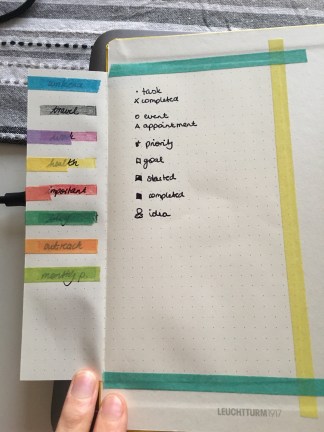 travel
health
important
outreach
monthly p.
• task
x completed
o event
△ appointment
priority
goal
started
completed
idea
LEUCHTTURM1917